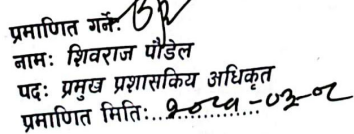 प्रमाणित गर्नेः
नामः शिवराज पौडेल
पदः प्रमुख प्रशासकिय अधिकृत
प्रमाणित मितिः २०८१-०३-०८